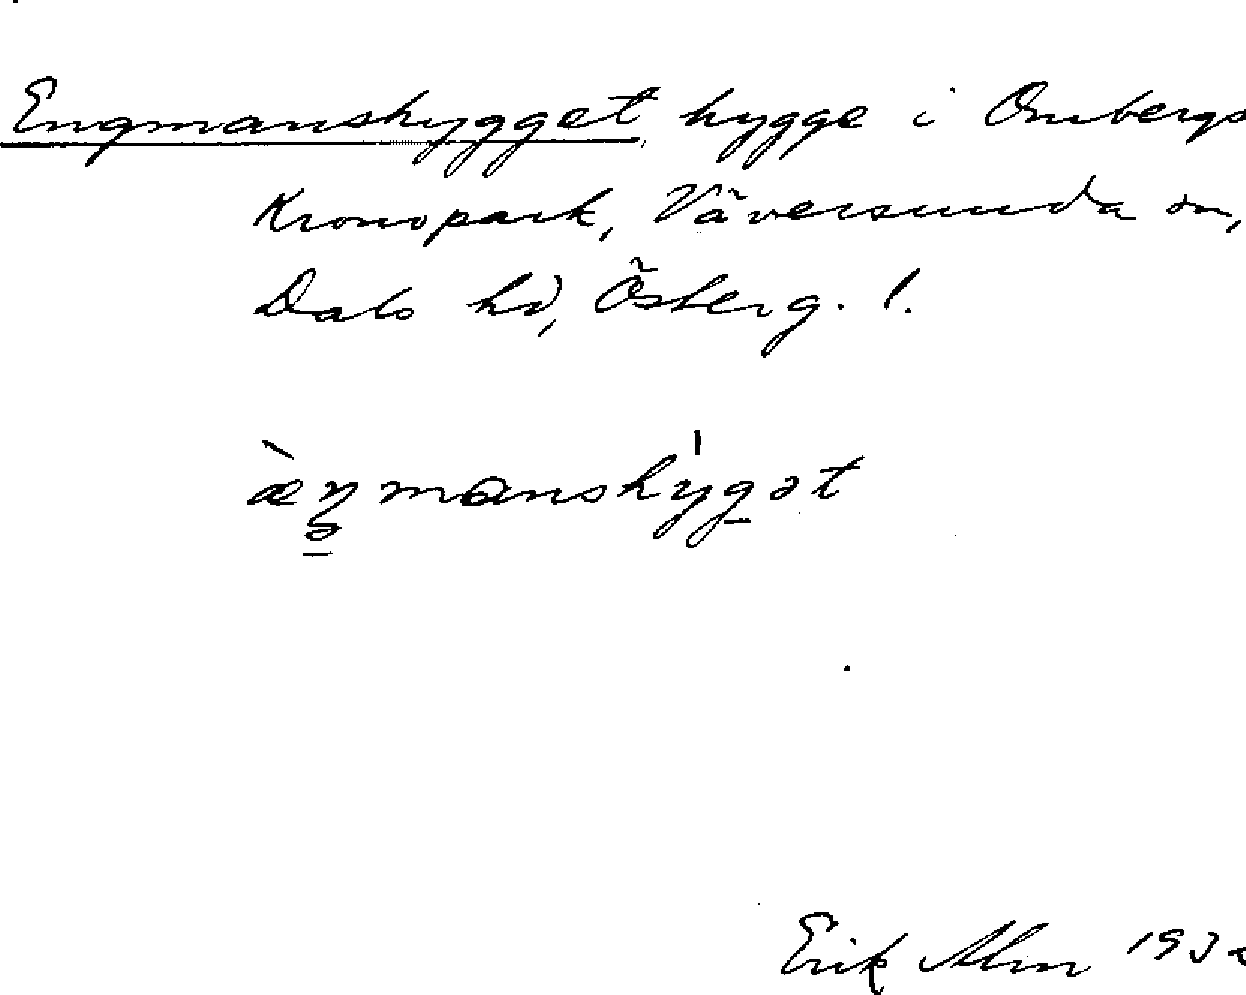 Engmanshygget, hygge i Ombergs
Kronopark, Väversunda sn,
Dals hd, Österg. !.
æ̀ŋmanshýgət
Erik Alm 193